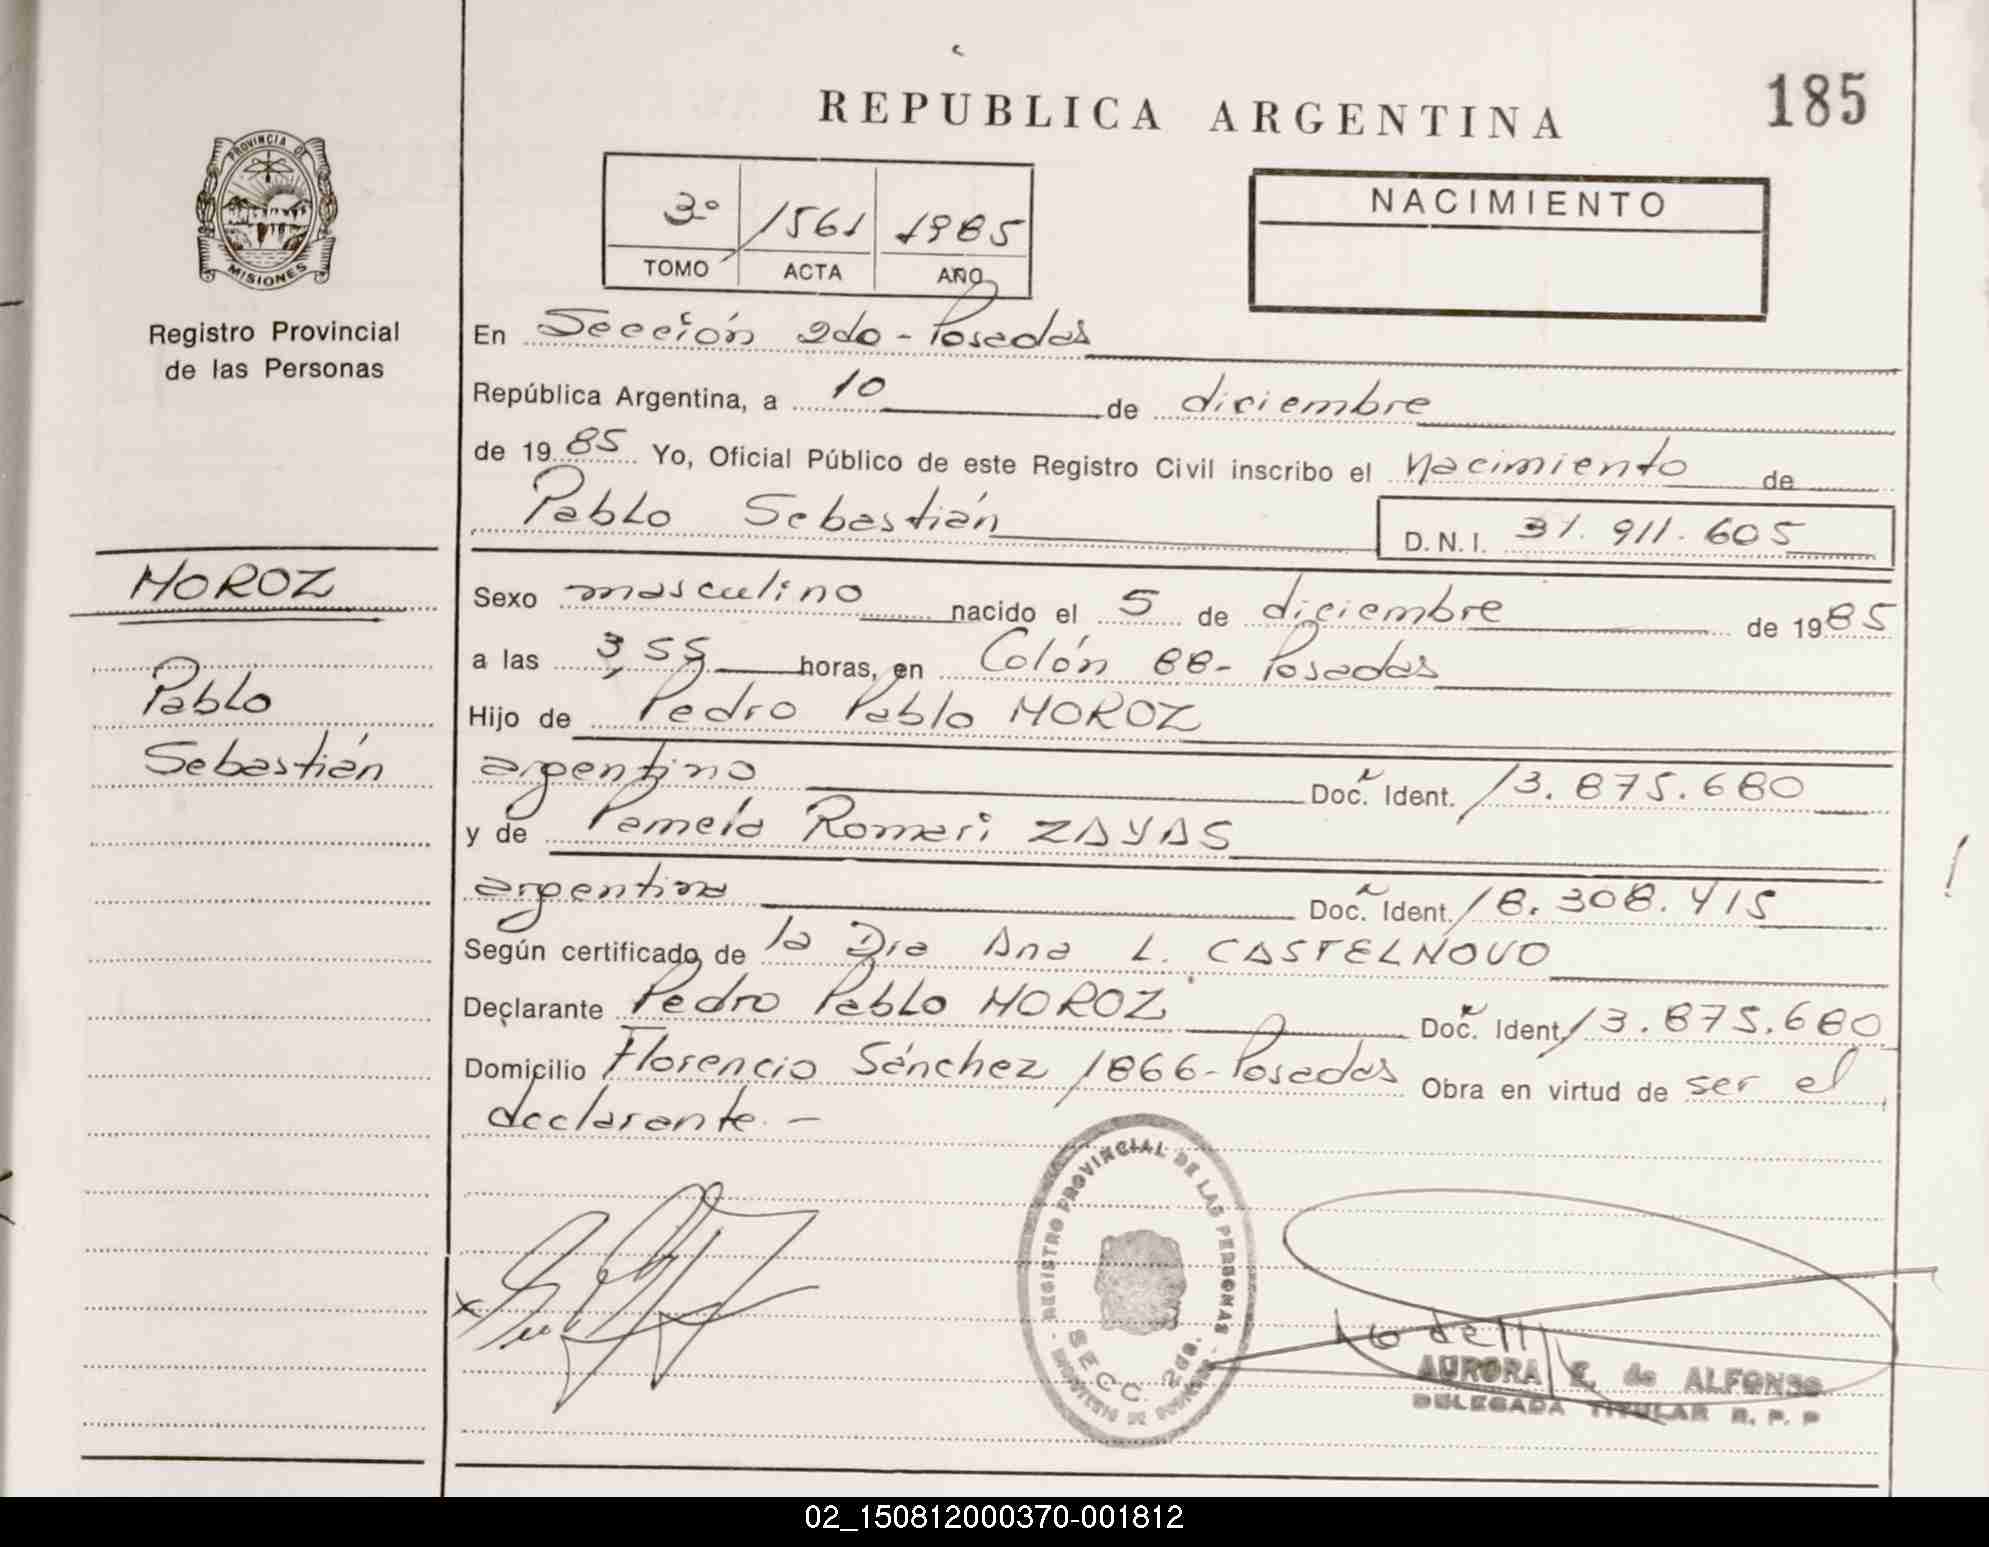 185
REPUBLICA ARGENTINA
PROVINCIA DE
MISIONES
Registro Provincial
de las Personas
3º 1561 1985
TOMO ACTA AÑO
NACIMIENTO
En Sección 2do - Posadas
República Argentina, a 10 de diciembre
de 1985 Yo, Oficial Público de este Registro Civil inscribo el nacimiento de
Pablo Sebastián D.N.I. 31.911.605
MOROZ
Pablo
Sebastián
Sexo masculino nacido el 5 de diciembre de 1985
a las 3,55 horas, en Colón 88 - Posadas
Hijo de Pedro Pablo MOROZ
argentino Doc. Ident. 13.875.680
y de Pamela Romari ZAYAS
argentina Doc. Ident. 18.308.415
Según certificado de la Dra Ana L. CASTELNOVO
Declarante Pedro Pablo MOROZ Doc. Ident. 13.875.680
Domicilio Florencio Sánchez 1866 - Posadas Obra en virtud de ser el
declarante. -
REGISTRO PROVINCIAL DE LAS PERSONAS
SECC. 2da.
AURORA E. de ALFONSO
DELEGADA TITULAR R. P. P
02_150812000370-001812